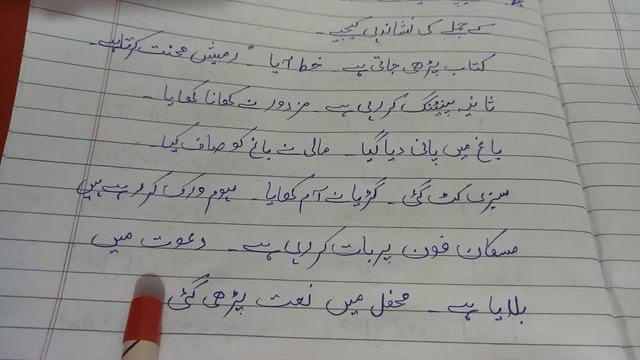 کے جملے کی نشاندہی کیجیے۔
کتاب پڑھی جاتی ہے۔ خط آیا۔ رمیش محنت کرتا ہے۔
ثانیہ پینٹنگ کر رہی ہے۔ مزدور نے کھانا کھایا۔
باغ میں پانی دیا گیا۔ مالی نے باغ کو صاف کیا۔
سبزی کٹ گئی۔ گڑیا نے آم کھایا۔ ہوم ورک کر رہے ہیں
مسکان فون پر بات کر رہی ہے۔ دعوت میں
بلایا ہے۔ محفل میں نعت پڑھی گئی